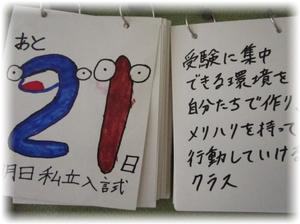 あと
21日
明日私立入試
受験に集中
できる環境を
自分たちで作り、
メリハリを持って
行動していける
クラス